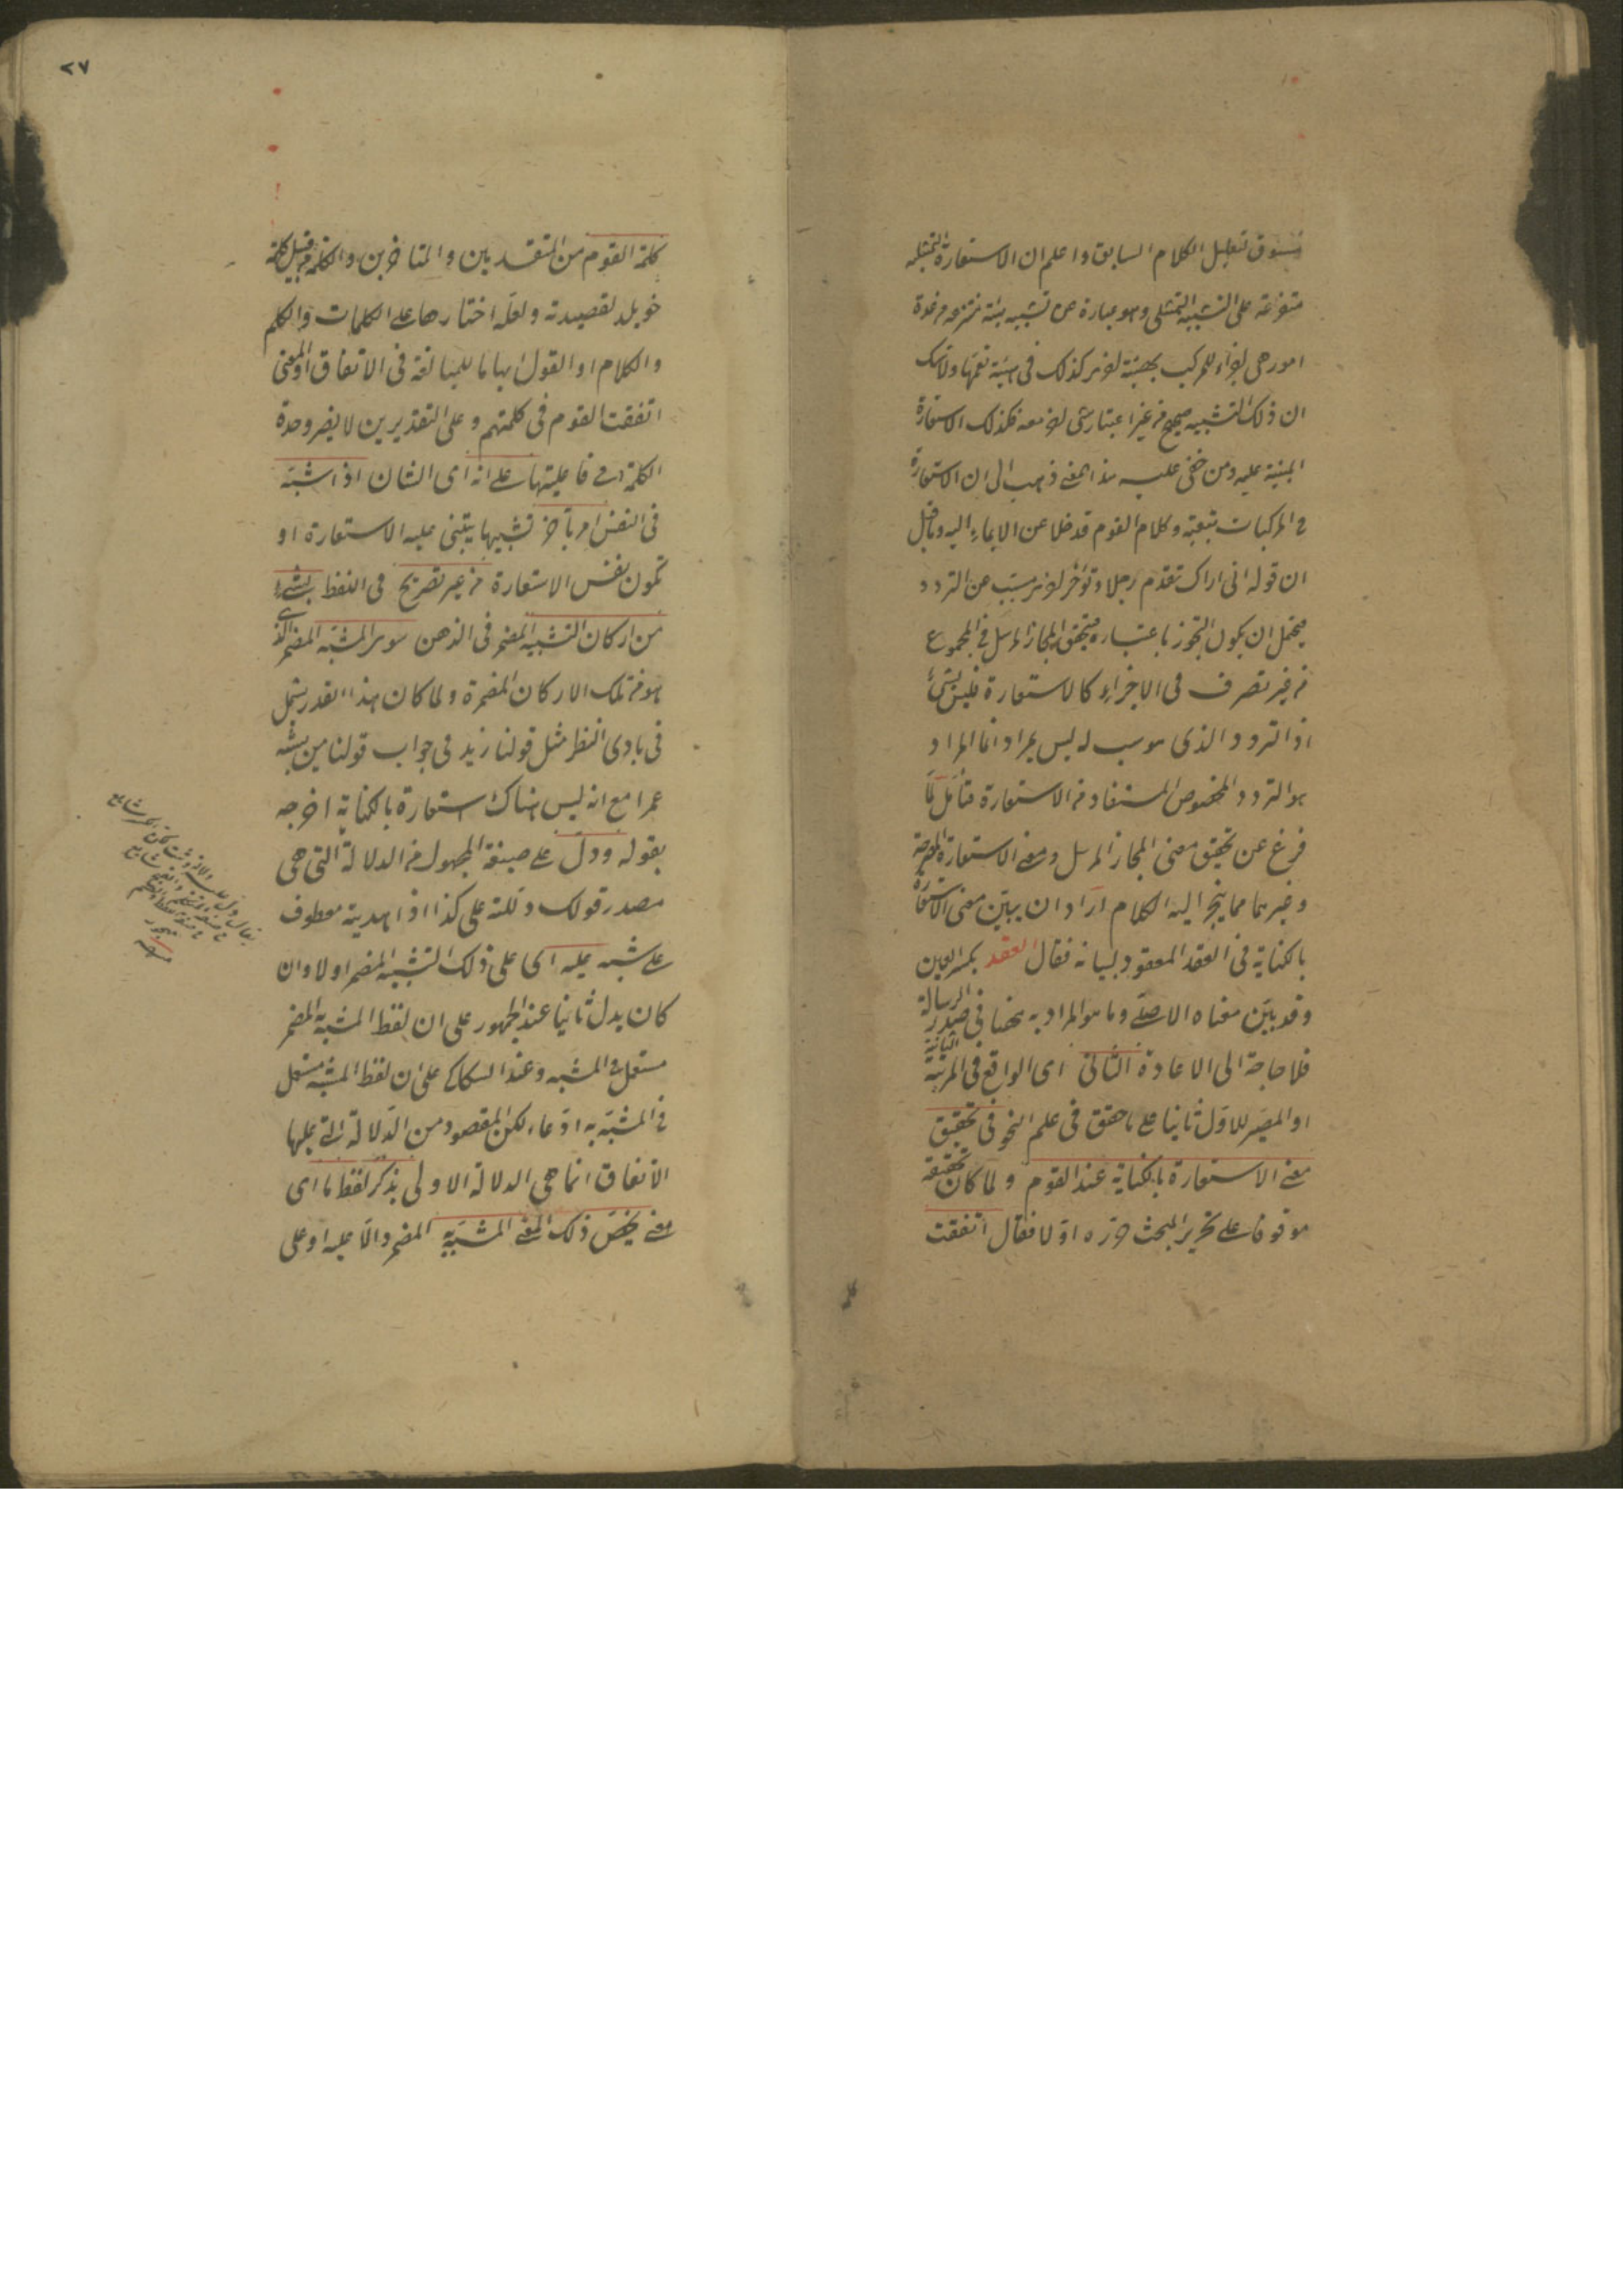 مسوق لتعليل الكلام السابق واعلم ان الاستعارة التمثيلية
متفرعة على التشبيه التمثيلى وهو عبارة عن تشبيه هيئة منتزعة من عدة
امور هى اجزاء للمركب بهيئة اخرى كذلك فى هيئة تعمها ولا شك
ان ذلك التشبيه صحيح من غير اعتبار شئ اخر معه فكذلك الاستعارة
المبنية عليه ومن خفى عليه هذا المعنى ذهب الى ان الاستعارة
فى المركبات تبعية وكلام القوم قد خلا عن الايماء اليه وما قيل
ان قوله انى اراك تقدم رجلا وتؤخر اخرى مسبب عن التردد
فيحتمل ان يكون التجوز باعتباره فيتحقق المجاز المرسل فى المجموع
من غير تصرف فى الاجزاء كالاستعارة فليس بشئ
اذ التردد الذى هو سبب له ليس بمراد انما المراد
هو التردد المخصوص المستفاد من الاستعارة فتأمل لما
فرغ عن تحقيق معنى المجاز المرسل ومعنى الاستعارة المصرحة
وغيرهما مما ينجر اليه الكلام اراد ان يبين معنى الاستعارة
بالكناية فى العقد المعقود لبيانه فقال العقد بكسر العين
وقد بين معناه الاصلى وما هو المراد به ههنا فى صدر الرسالة
فلا حاجة الى الاعادة الثانى اى الواقع فى المرتبة الثانية
او المصير للاول ثانيا على ما حقق فى علم النحو فى تحقيق
معنى الاستعارة بالكناية عند القوم ولما كان تحقيقه
موقوفا على تحرير المبحث حرره اولا فقال اتفقت
كلمة
٢٧
كلمة القوم من المتقدمين والمتاخرين والكلمة من قبيل كلمة
خويلد لقصيدته ولعله اختارها على الكلمات والكلم
والكلام او القول ايهاما للمبالغة فى الاتفاق او المعنى
اتفقت القوم فى كلمتهم وعلى التقديرين لا يضر وحدة
الكلمة فى فاعليتها على انه اى الشان اذا شبه
فى النفس امر بآخر تشبيها يبتنى عليه الاستعارة او
تكون نفس الاستعارة من غير تصريح فى اللفظ بشئ
من اركان التشبيه المضمر فى الذهن سوى المشبه المضمر الذى
هو من تلك الاركان المضمرة ولما كان هذا القدر يشمل
فى بادى النظر مثل قولنا زيد فى جواب قولنا من يشبه
عمرا مع انه ليس هناك استعارة بالكناية اخرجه
بقوله ودل على صيغة المجهول من الدلالة التى هى
مصدر قولك دللته على كذا اذا هديته معطوف
على شبه عليه اى على ذلك التشبيه المضمر اولا وان
كان يدل ثانيا عند الجمهور على ان لفظ المشبه به المضمر
مستعمل فى المشبه وعند السكاكى على ان لفظ المشبه مستعمل
فى المشبه به ادعاء لكن المقصود من الدلالة التى عليها
الاتفاق انما هى الدلالة الاولى بذكر لفظ ما اى
معنى يخص ذلك المعنى المشبه به المضمر والا عليه او على